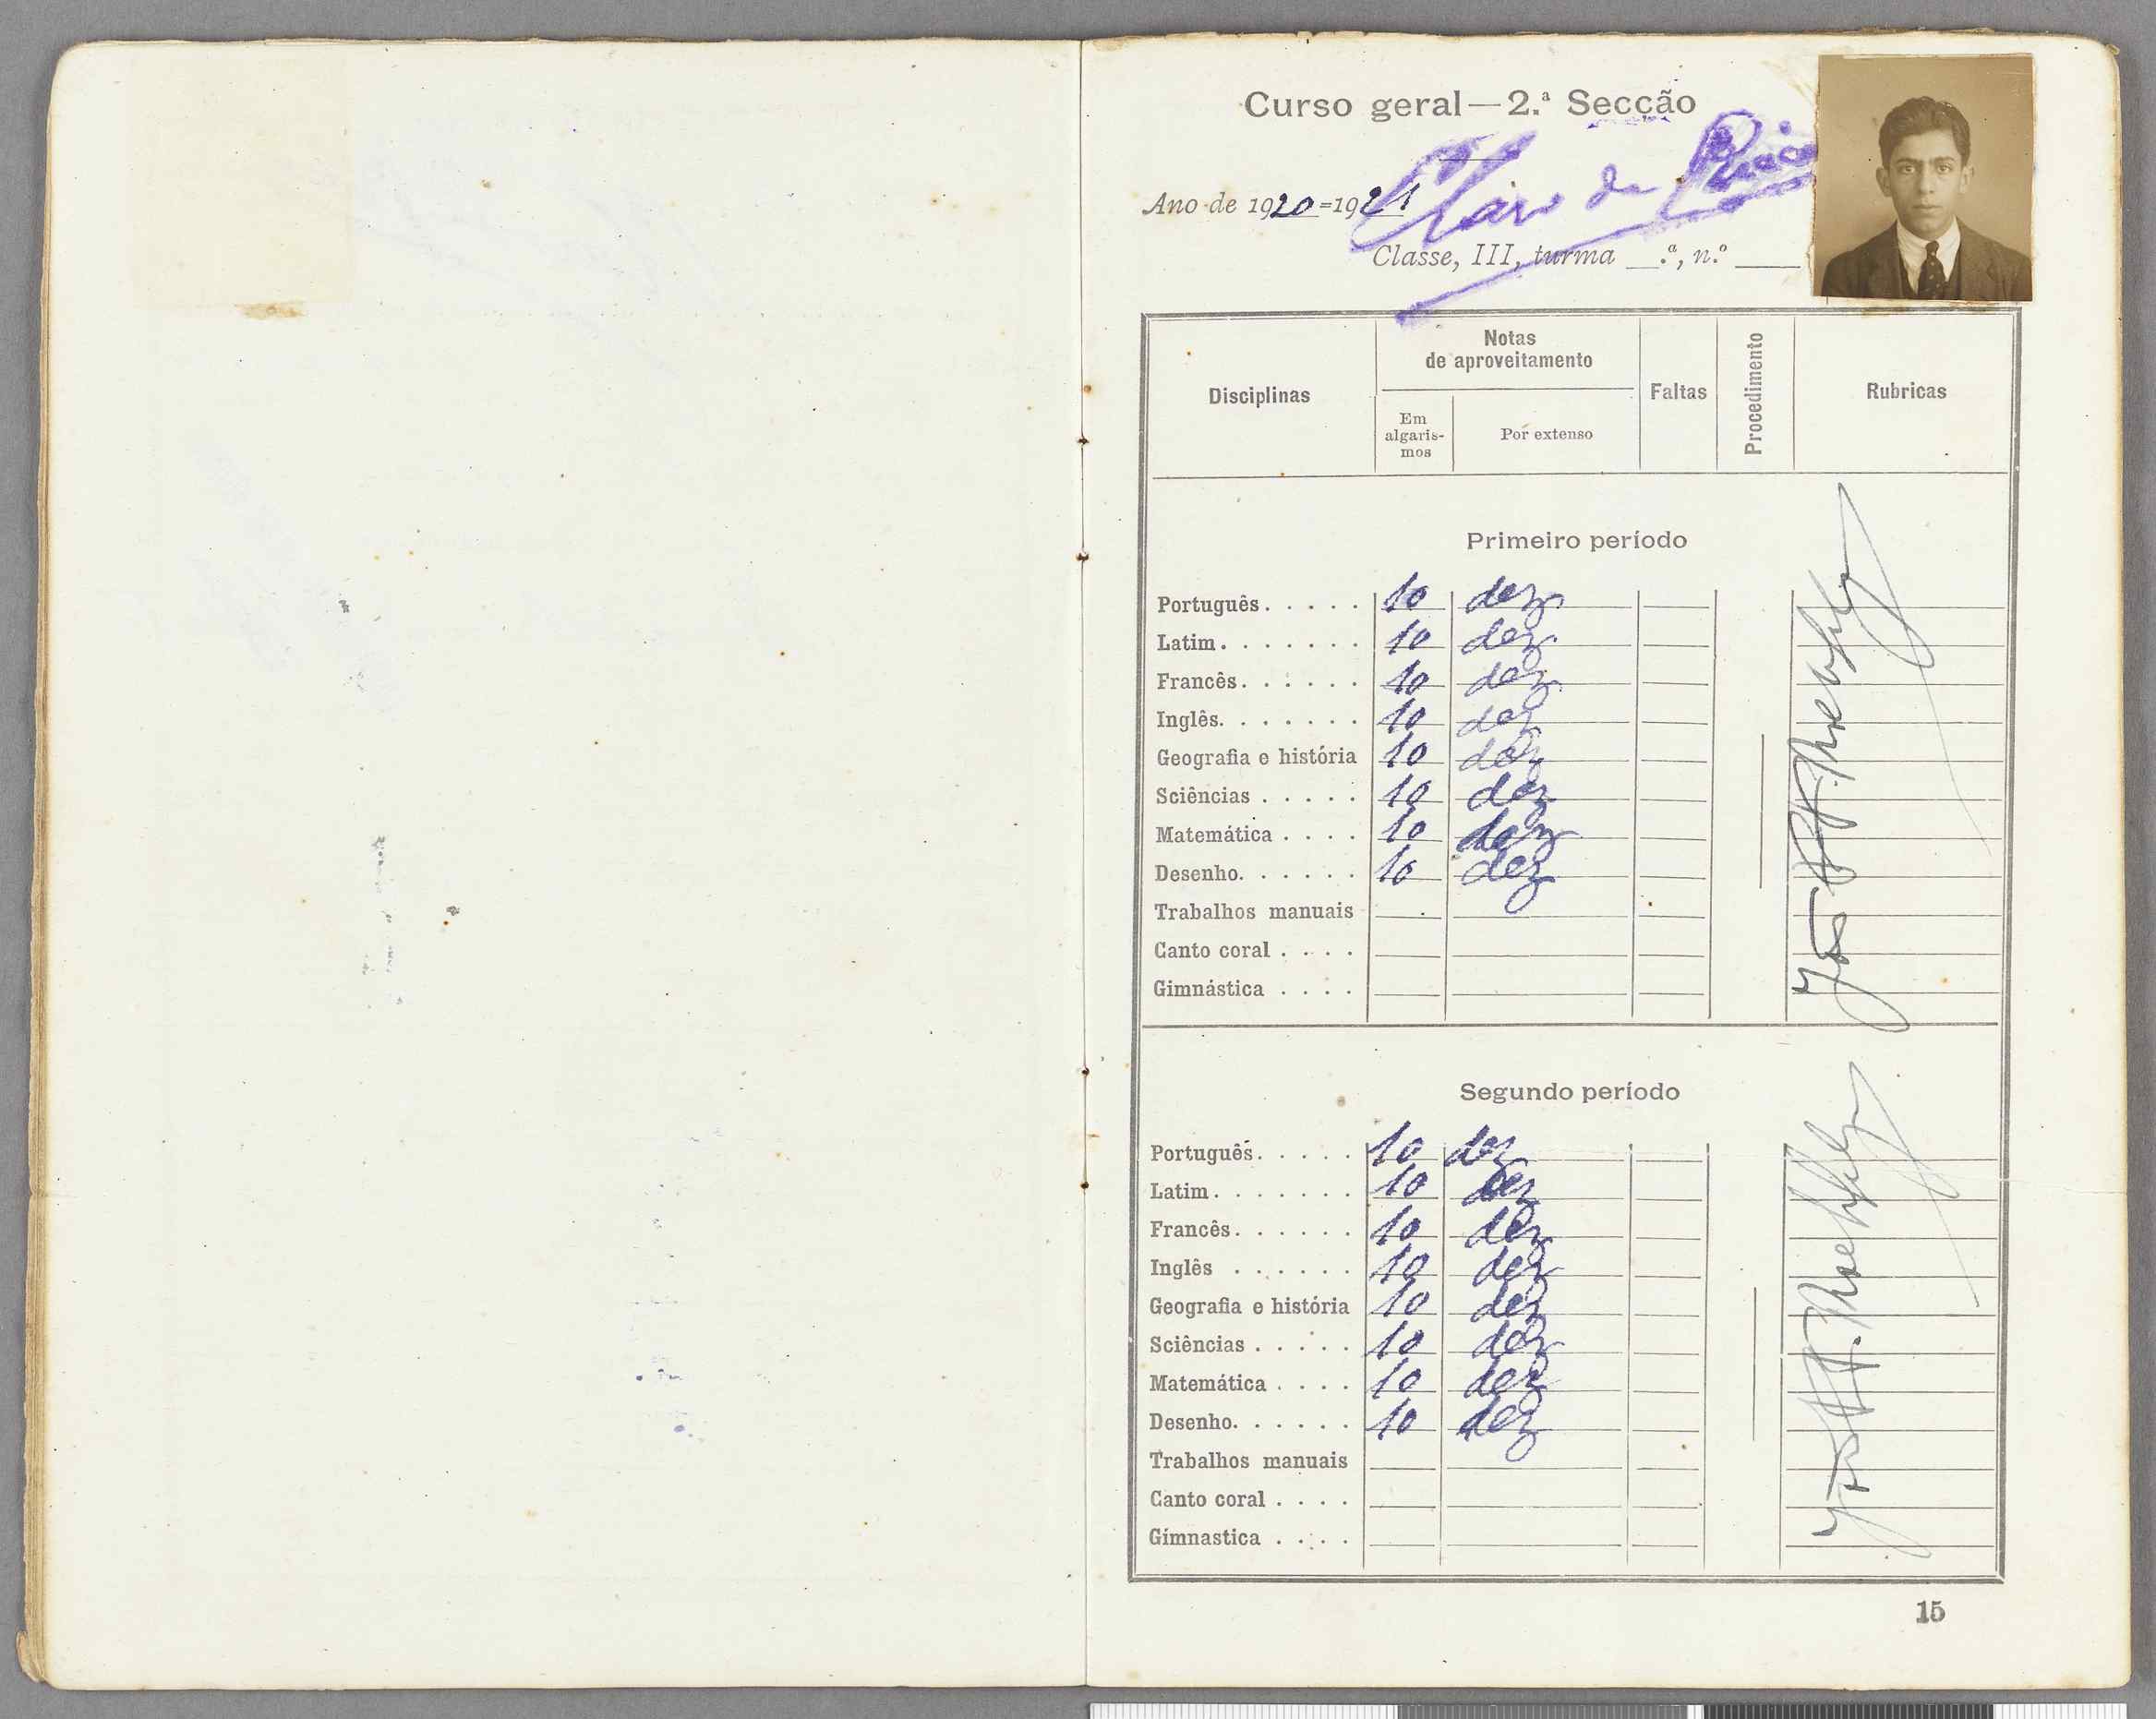 Curso geral—2.ª Secção
Ano de 1920=1921
Classe, III, turma __.ª, n.º ____
Disciplinas
Notas
de aproveitamento
Em
algaris-
mos
Por extenso
Faltas
Procedimento
Rubricas
Primeiro período
Português. . . . . 10 dez
Latim. . . . . . . 10 dez
Francês. . . . . . 10 dez
Inglês. . . . . . . 10 dez
Geografia e história 10 dez
Sciências . . . . . 10 dez
Matemática . . . . 10 dez
Desenho. . . . . . 10 dez
Trabalhos manuais
Canto coral . . . .
Gimnástica . . . .
Segundo período
Português. . . . . 10 dez
Latim. . . . . . . 10 dez
Francês. . . . . . 10 dez
Inglês . . . . . . 10 dez
Geografia e história 10 dez
Sciências . . . . . 10 dez
Matemática . . . . 10 dez
Desenho. . . . . . 10 dez
Trabalhos manuais
Canto coral . . . .
Gimnastica . . . .
15